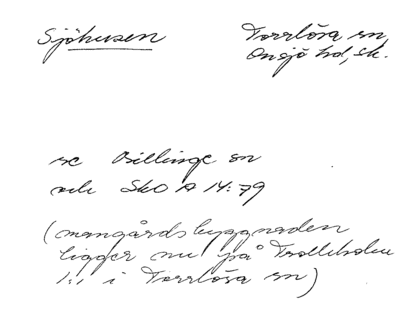 Sjöhusen
Torrlösa sn,
Onsjö hd, Sk.
se Billinge sn
och SkO A 14:79
(mangårdsbyggnaden
ligger nu på Trolleholm
1:1 i Torrlösa sn)